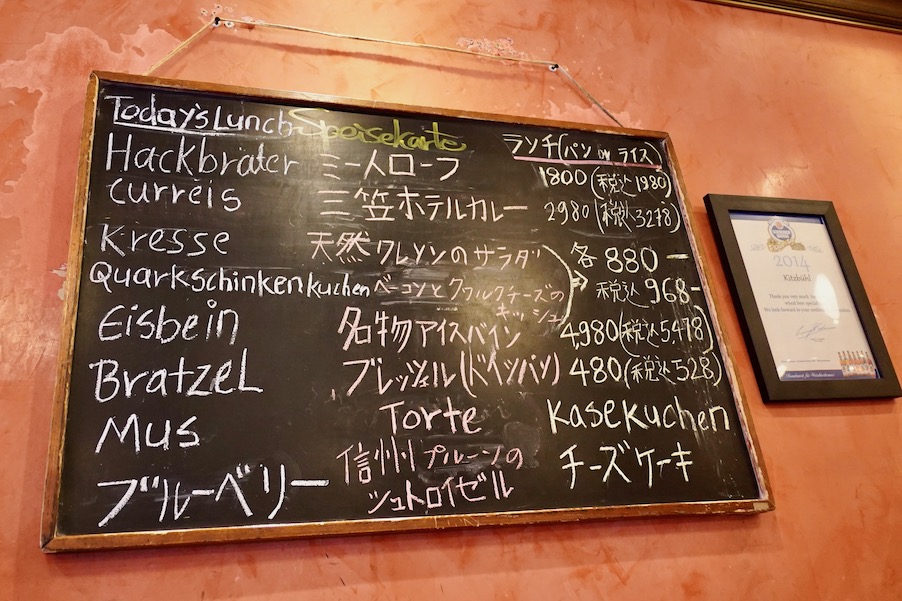 Today's Lunch Speisekarte
ランチ(パン or ライス)
Hackbräter ミートローフ 1800(税込1980)
curreis 三笠ホテルカレー 2980(税込3278)
Kresse 天然クレソンのサラダ 各880-
Quarkschinkenkuchen ベーコンとクワルクチーズの
キッシュ 税込968-
Eisbein 名物アイスバイン 4,980(税込5,478)
Bratzel ブレッツェル(ドイツパン) 480(税込528)
Mus Torte Kasekuchen
ブルーベリー 信州プルーンの チーズケーキ
シュトロイゼル
2014
Kitzbühl
Thank you very much